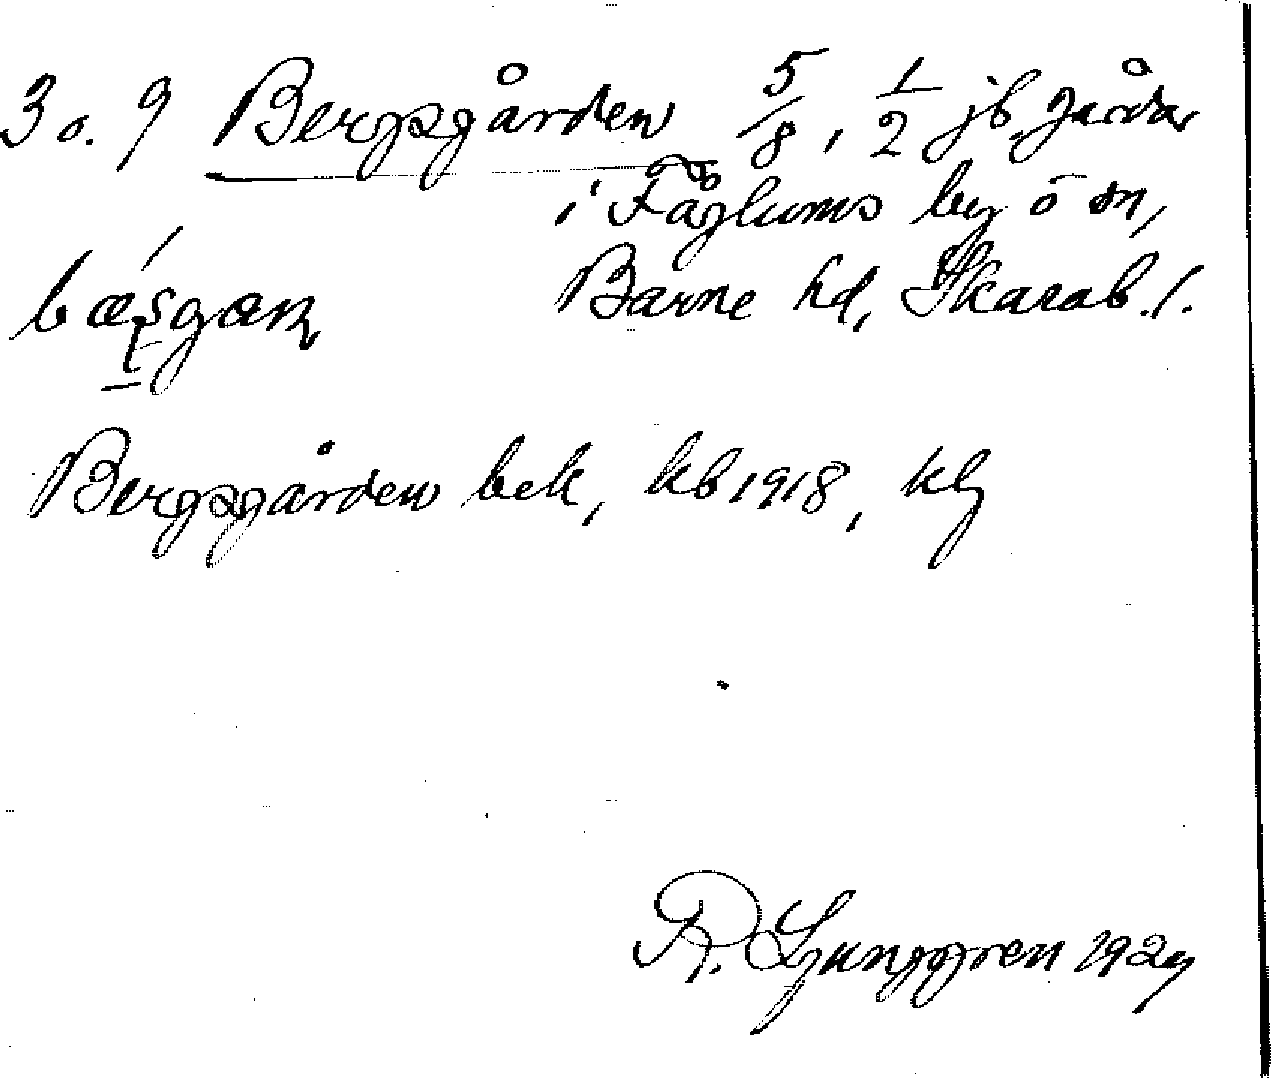 3 o. 9 Bergsgården 5/8, 1/2 jb gårdar
i Fåglums by o sn,
bæ̀sgan Barne hd, Skarab. l.
Bergsgården bek, kb 1918, kg
R. Ljunggren 1929